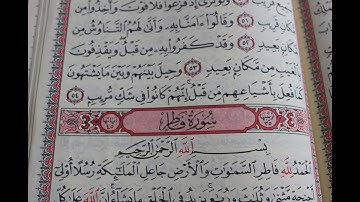 وَلَوْ تَرَىٰ إِذْ فَزِعُوا فَلَا فَوْتَ وَأُخِذُوا مِن
مَّكَانٍ قَرِيبٍ ٥١ وَقَالُوا ءَامَنَّا بِهِ وَأَنَّىٰ لَهُمُ التَّنَاوُشُ مِن
مَّكَانٍ بَعِيدٍ ٥٢ وَقَدْ كَفَرُوا بِهِ مِن قَبْلُ وَيَقْذِفُونَ
بِالْغَيْبِ مِن مَّكَانٍ بَعِيدٍ ٥٣ وَحِيلَ بَيْنَهُمْ وَبَيْنَ مَا يَشْتَهُونَ
كَمَا فُعِلَ بِأَشْيَاعِهِم مِّن قَبْلُ إِنَّهُمْ كَانُوا فِي شَكٍّ مُّرِيبٍ ٥٤
سُورَةُ فَاطِرٍ
بِسْمِ اللَّهِ الرَّحْمَٰنِ الرَّحِيمِ
الْحَمْدُ لِلَّهِ فَاطِرِ السَّمَٰوَٰتِ وَالْأَرْضِ جَاعِلِ الْمَلَٰئِكَةِ رُسُلًا أُولِي
أَجْنِحَةٍ مَّثْنَىٰ وَثُلَٰثَ وَرُبَٰعَ يَزِيدُ فِي الْخَلْقِ مَا يَشَاءُ إِنَّ اللَّهَ عَلَىٰ كُلِّ